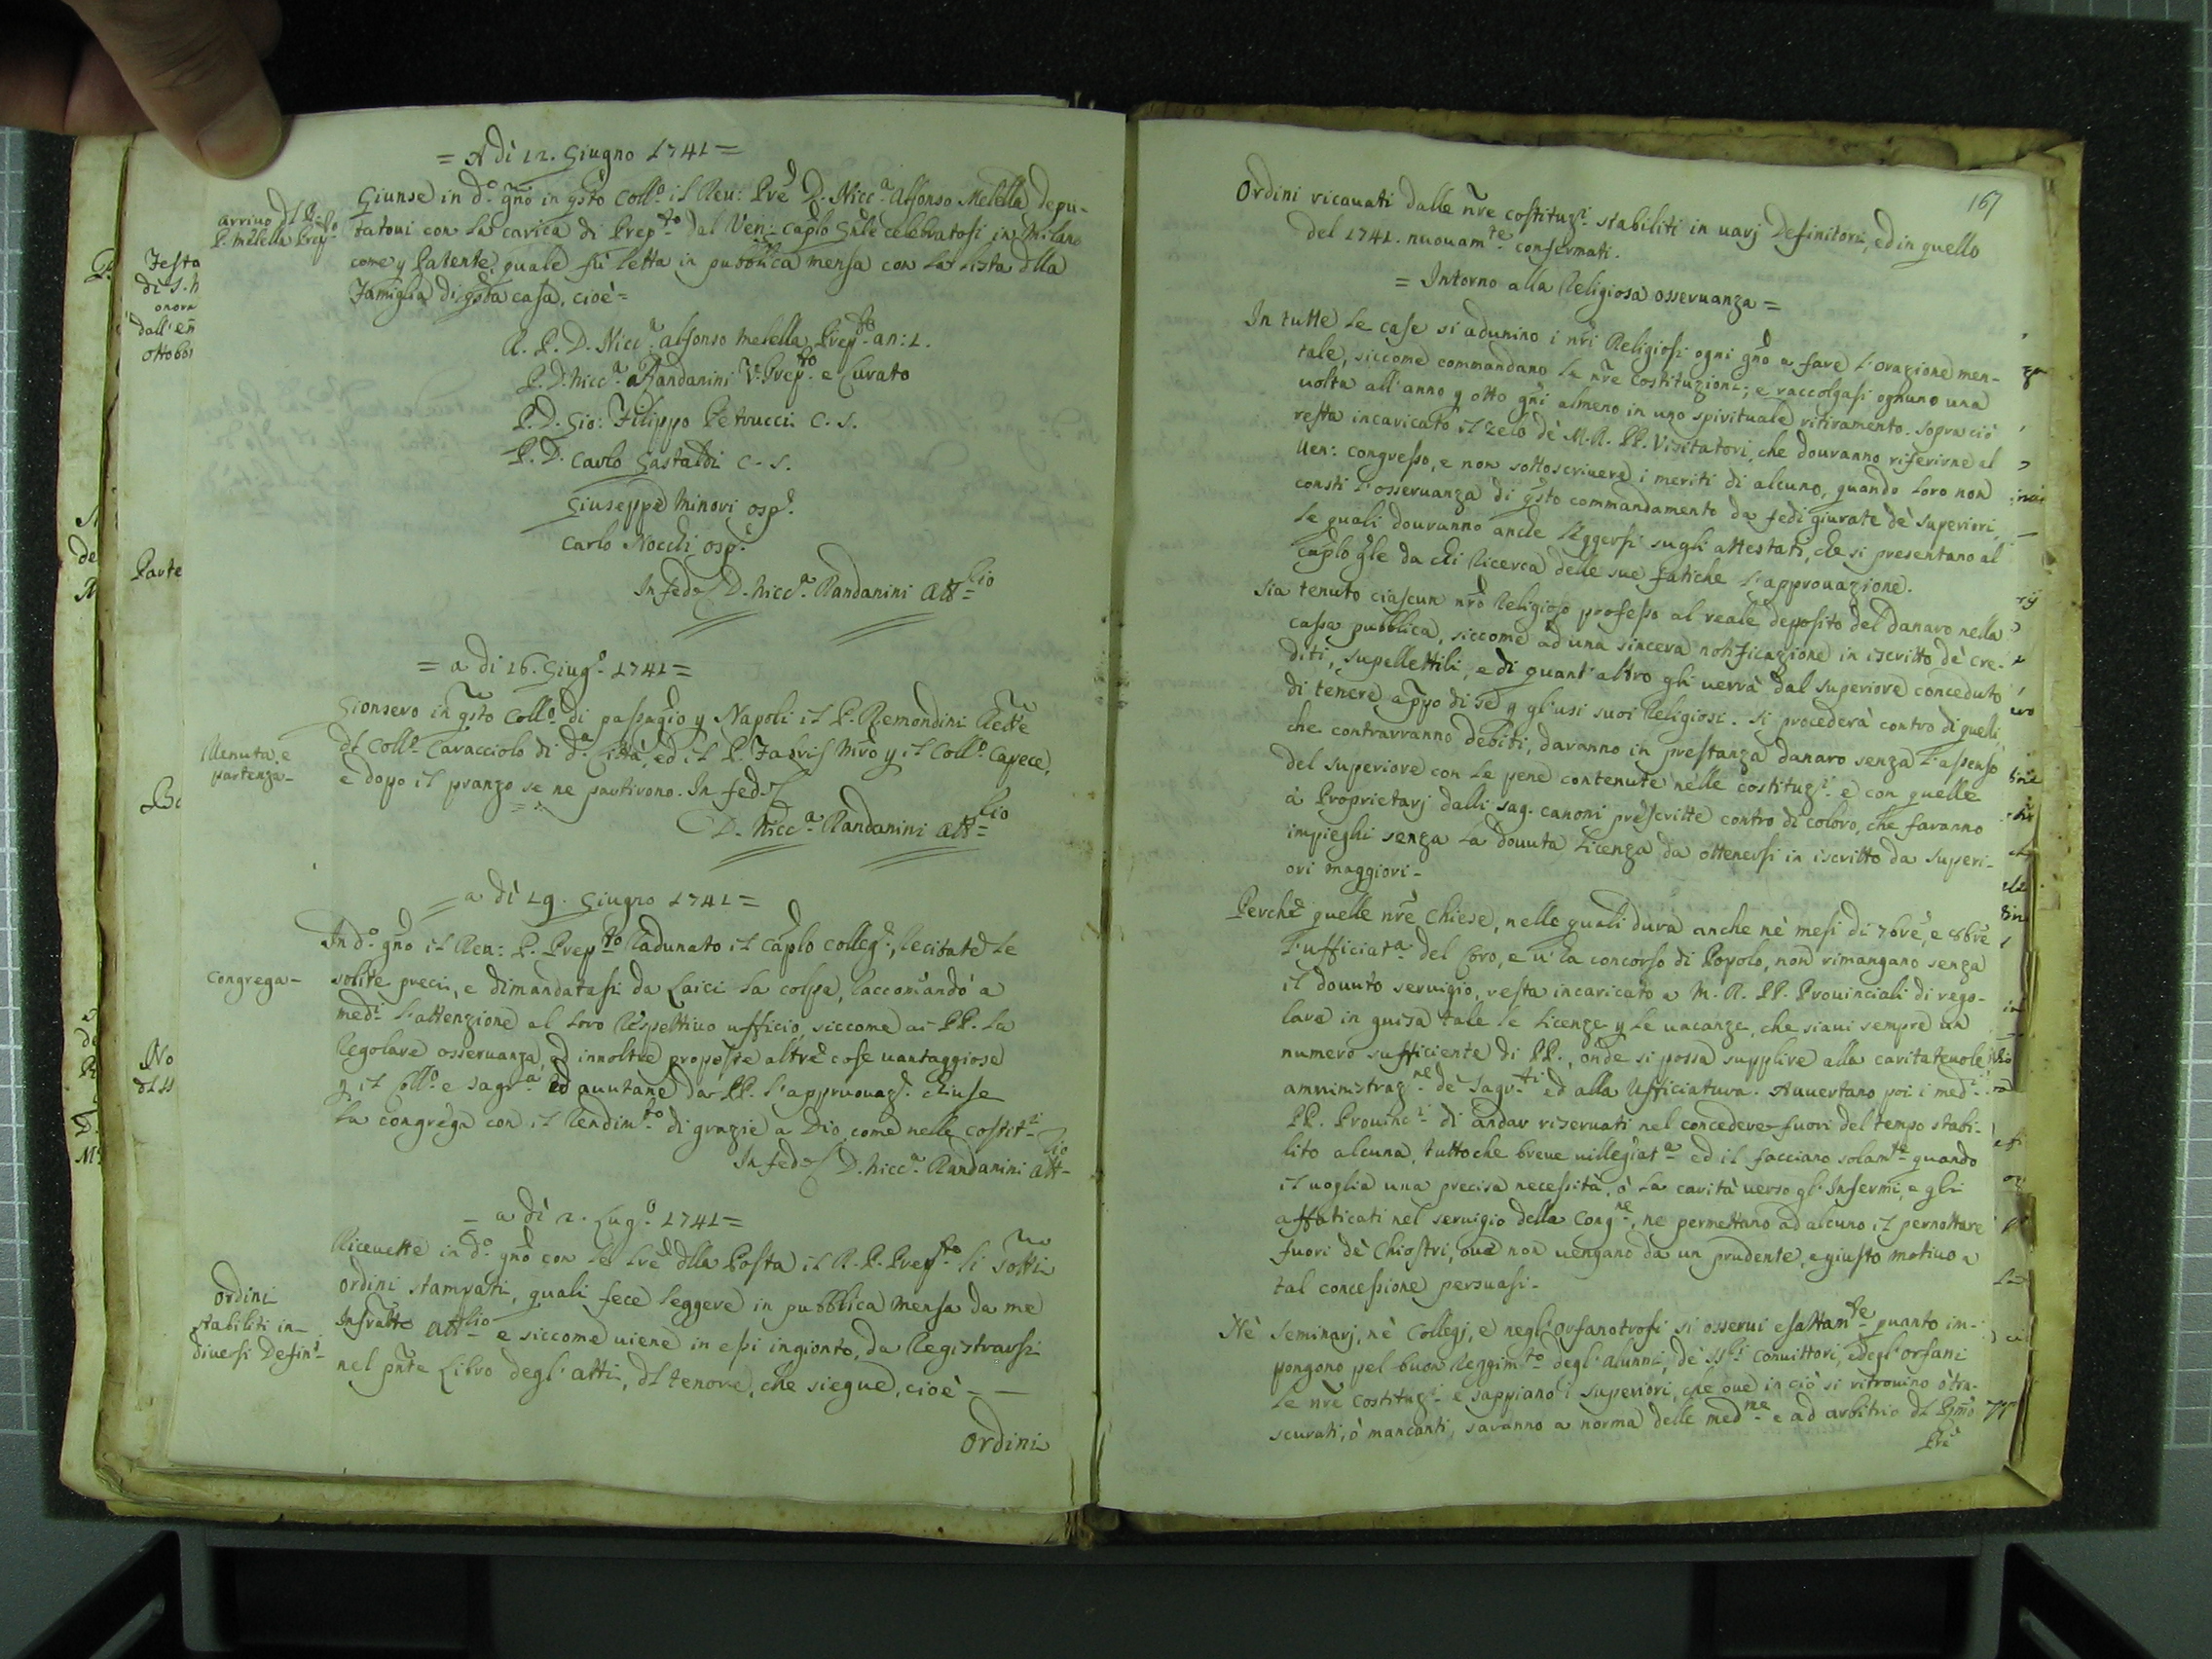 = A dì 12. Giugno 1741 =
arrivo dl R:
P. Melella Prep.to
Giunse in d.o gño in qsto Coll.o il Rev: Prē D. Nicc.a Alfonso Melella depu-
tatoui con la carica di Prep.to dal Ven: Caplo Gnle celebratosi in Milano
come p Patente, quale fù letta in pubblica mensa con la lista dlla
Famiglia di qsta casa, cioè =
R. P. D. Nicc.a Alfonso Melella Prep.to an: 1.
P. D. Nicc.a Randanini V. Prep.to e Curato
P. D. Gio: Filippo Petrucci C. S.
P. D. Carlo Gastaldi C. S.
Giuseppe Minori osp.e
Carlo Nocchi osp.e
In fede D. Nicc.a Randanini Att.rio
= a di 16. Giug.o 1741 =
Venuta, e
partenza -
Gionsero in qsto Coll.o di passagio p Napoli il P. Remondini Rette
dl Coll.o Caracciolo di d.a Città, ed il P. Fabris Mrõ p il Coll.o Capece,
e dopo il pranzo se ne partirono. In fede
D. Nicc.a Randanini Att.rio
= a dì 19. Giugno 1741 =
Congrega -
In d.o gño il Rev: P. Prep.to Radunato il Caplo Colleg.e, Recitate le
solite preci, e dimandatasi da Laici la colpa, Raccomandò a
med.i l'attenzione al loro Respettivo ufficio, siccome ai PP. la
Regolare osservanza, ed innoltre proposte altre cose vantaggiose
p il Coll.o e sagr.a ed avutane da PP. l'approvaz.e chiuse
la congrega con il Rendim.to di grazie a Dio come nelle costit.i
In fede D. Nicc.a Randanini Att.rio
= a dì 2. Lug.o 1741 =
Ordini
stabiliti in
diversi Defin.i
Ricevette in d.o gño con le lrē dlla Posta il R. P. Prep.to li sotti
ordini stampati, quali fece leggere in pubblica Mensa da me
Infratto Att.rio e siccome viene in essi ingionto, da Registrarsi
nel pnte Libro degl'atti, dl tenore, che siegue, cioè - -
Ordini
167
Ordini ricauati dalle nre costituz.i stabiliti in uarj Definitorj, ed in quello
del 1741. nuouam.te confermati.
= Intorno alla Religiosa osseruanza =
In tutte le case si adunino i nri Religiosi ogni gño a fare l'orazione men-
tale, siccome commandano le nre Costituzioni; e raccolgasi ognuno una
uolta all'anno p otto gñi almeno in uno spirituale ritiramento. Sopra ciò
resta incaricato il zelo dè M. R. PP. Visitatori, che douranno riferirne al
Uen: congresso, e non sottoscriuere i meriti di alcuno, quando loro non
consti l'osseruanza di qsto commandamento da fedi giurate dè Superiori,
le quali douranno anche leggersi sugli attestati, che si presentano al
Caplo Gle da chi Ricerca delle sue fatiche l'approuazione.
Sia tenuto ciascun nrõ Religioso professo al reale deposito del danaro nella
cassa pubblica, siccome ad una sincera notificazione in iscritto dè cre-
diti, supellettili, e di quant'altro gli uerrà dal Superiore conceduto
di tenere appo di sé p gl'usi suoi Religiosi. Si procederà contro di quelli,
che contrarranno debiti, daranno in prestanza danaro senza l'assenso
del Superiore con le pene contenute nelle costituz.i e con quelle
à Proprietarj dalli sag. canoni prescritte contro di coloro, che faranno
impieghi senza la douuta licenza da ottenersi in iscritto da Superi-
ori maggiori -
Perche quelle nre Chiese, nelle quali dura anche nè mesi di 7bre, e 8bre
l'ufficiat.a del Coro, e u'ha concorso di Popolo, non rimangano senza
il douuto seruigio, resta incaricato a M. R. PP. Prouinciali di rego-
lare in guisa tale le licenze p le uacanze, che siaui sempre un
numero sufficiente di PP., onde si possa supplire alla caritateuole
amministraz.ne dè Sagr.ti ed alla Ufficiatura. Auuertano poi i med.i
PP. Prouinc.i di andar riseruati nel concedere fuori del tempo stabi-
lito alcuna, tuttoche breue uillegiat.a ed il facciano solam.te quando
il uoglia una precisa necessità, ò la carità uerso gl'Infermi, e gli
affaticati nel seruigio della Cong.ne, ne permettano ad alcuno il pernottare
fuori dè Chiostri, oue non uengano da un prudente, e giusto motiuo a
tal concessione persuasi -
Nè Seminarj, nè Collegj, e negl'orfanotrofi si osserui esattam.te quanto im-
pongono pel buon Reggim.to degl'alunni, dè SS.ri Conuittori, e degl'orfani
le nre Costituz.i e sappiano i Superiori, che oue in ciò si ritrouino ò tra-
scurati, ò mancanti, saranno a norma delle med.me e ad arbitrio dl Rmo
Prē